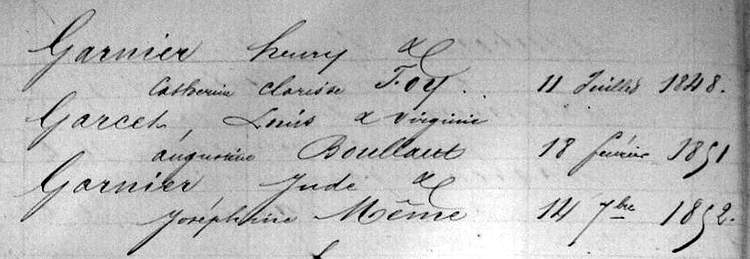 Garnier henry &
Catherine Clarisse Foy. 11 Juillet 1848.
Garcet, Louis & Virginie
augustine Boullant 18 février 1851
Garnier Jude &
Joséphine Même 14 7bre 1852.